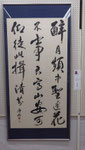 醉月頻中聖迷花
不事君高山安可
仰徒此揖清芬